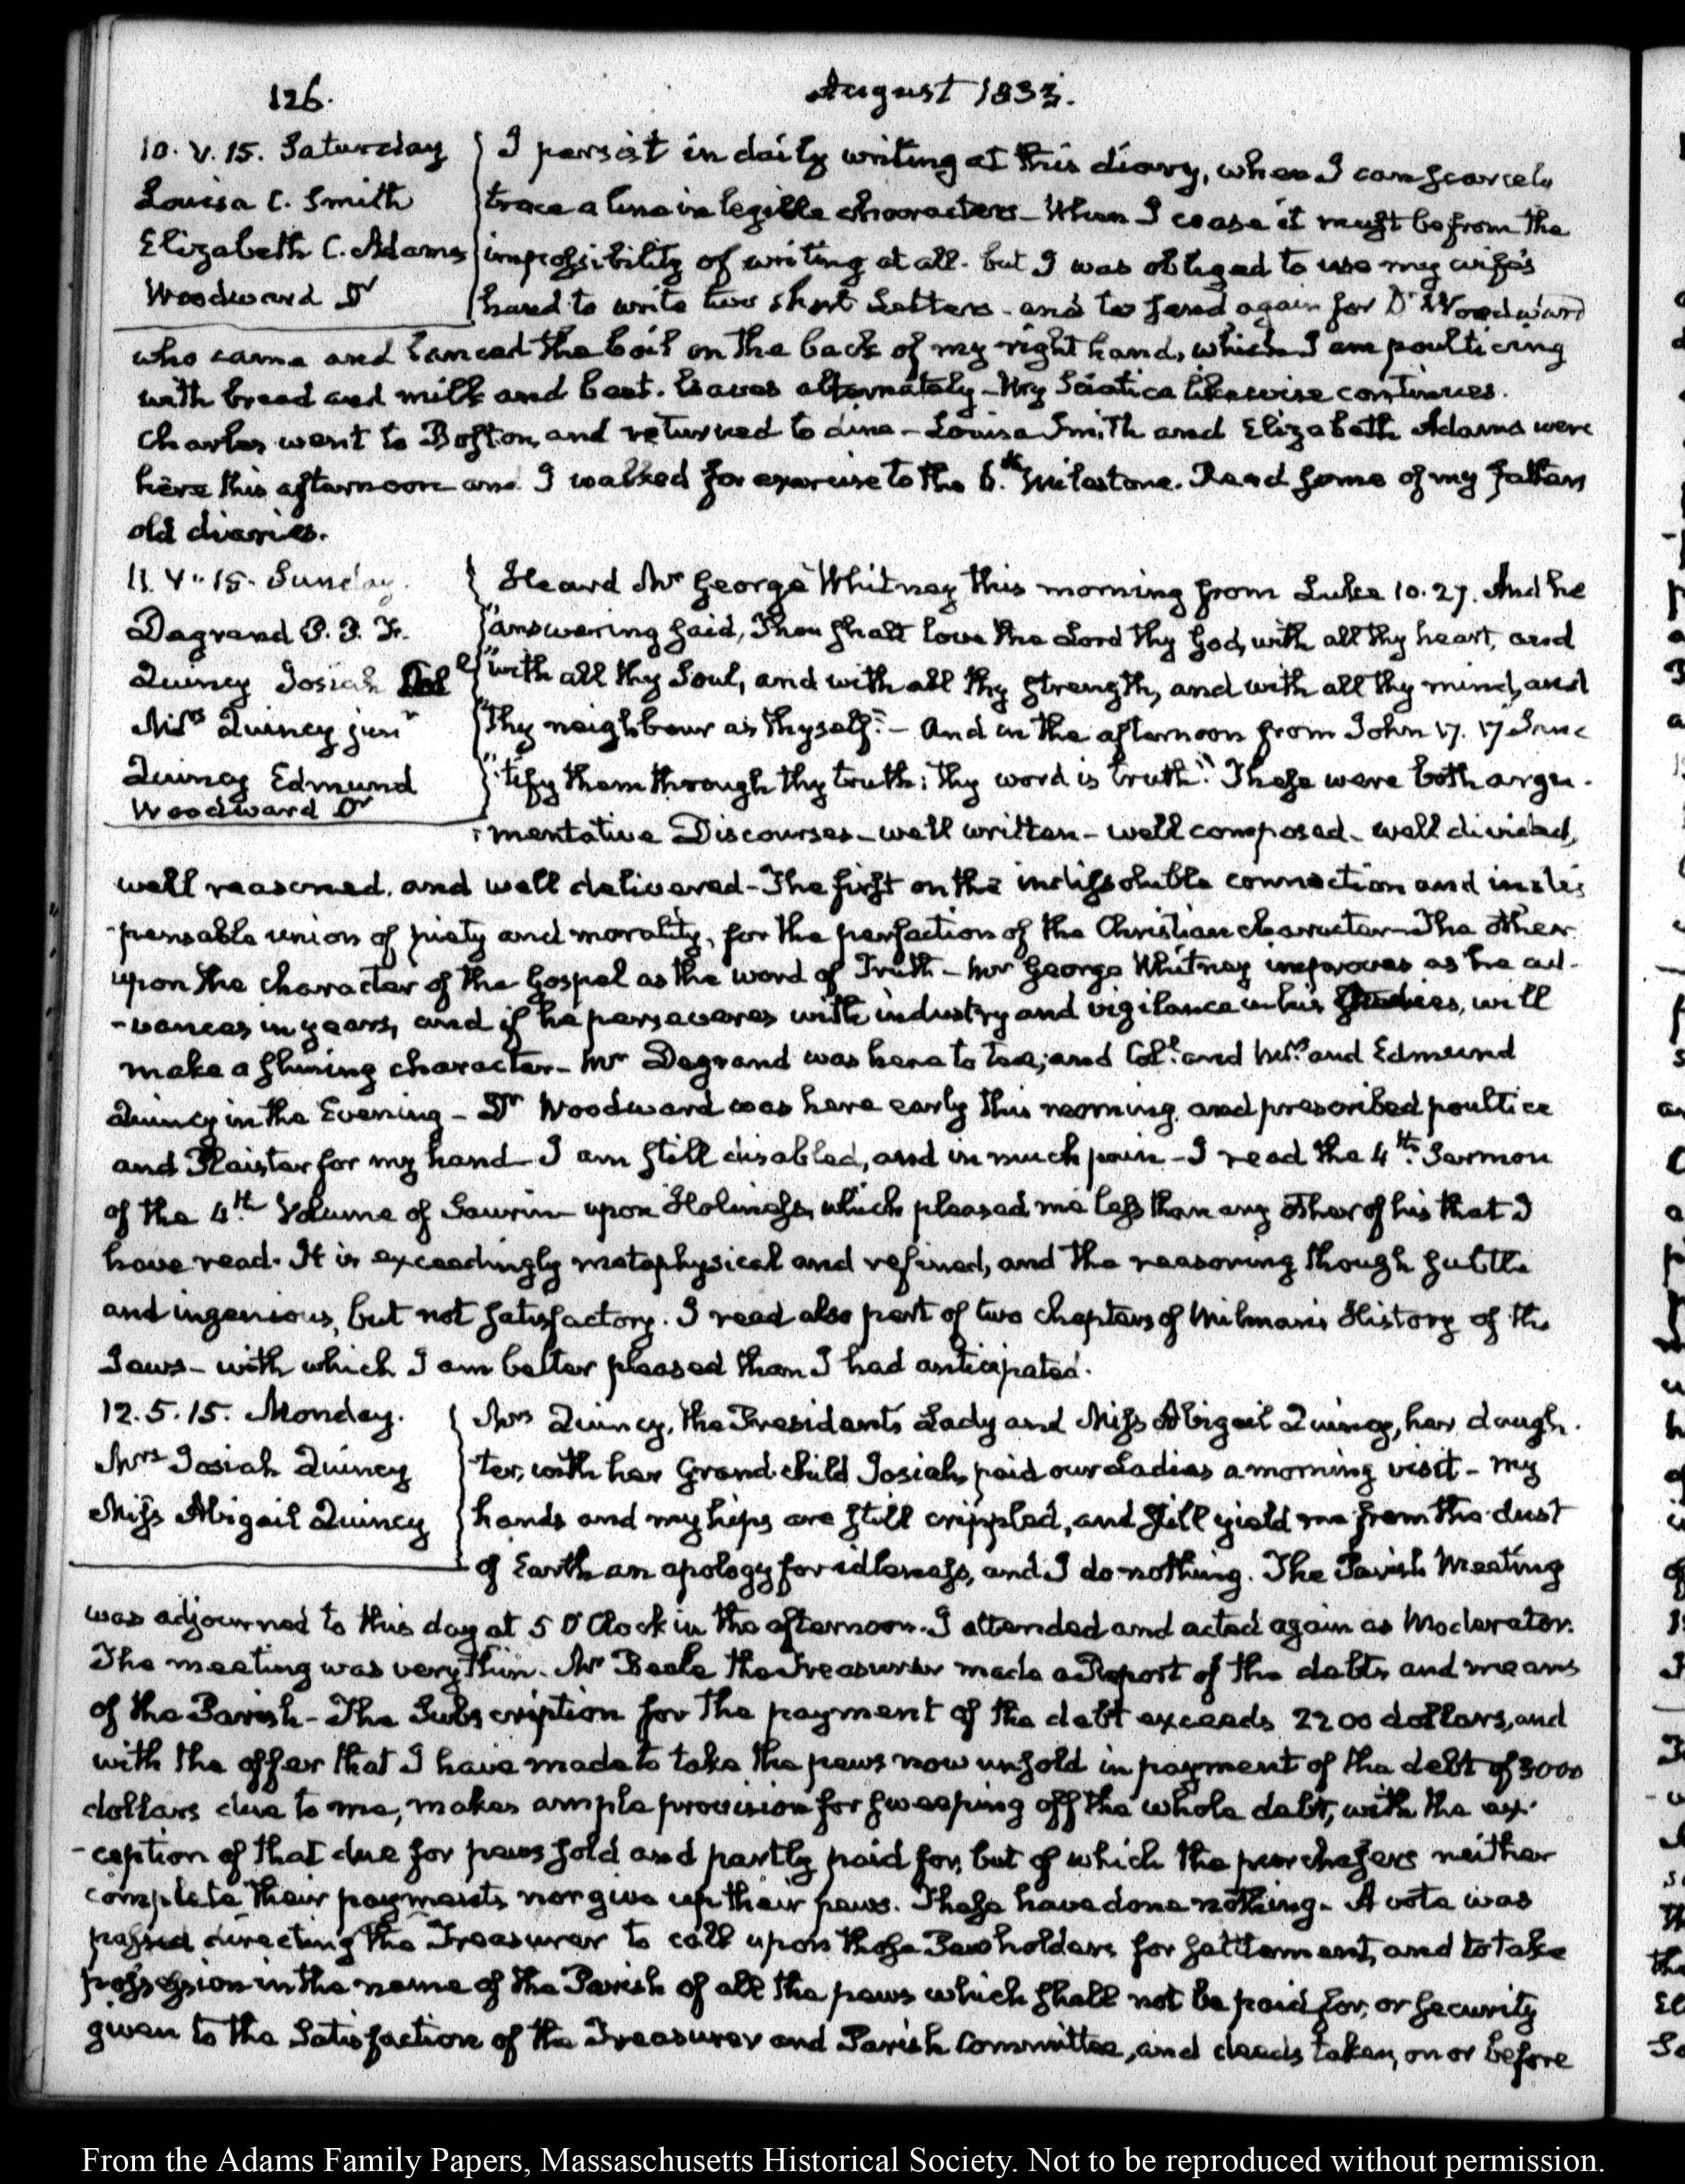 126. August 1833.
10. V. 15. Saturday
Louisa C. Smith
Elizabeth C. Adams
Woodward Dr
I persist in daily writing at this diary, when I can scarcely
trace a line in legible characters - When I cease it must be from the
impossibility of writing at all. but I was obliged to use my wife's
hand to write two short Letters - and to send again for Dr Woodward
who came and lanced the boil on the back of my right hand, which I am poulticing
with bread and milk and beet. leaves alternately - My Sciatica likewise continues.
Charles went to Boston, and returned to dine - Louisa Smith and Elizabeth Adams were
here this afternoon and I walked for exercise to the 6.th Milestone. Read some of my fathers
old diaries.
11. V. 15. Sunday.
Degrand P. P. F.
Quincy Josiah
Mrs Quincy junr
Quincy Edmund
Woodward Dr
Heard Mr George Whitney this morning from Luke 10. 27. And he
"answering said, Thou shalt love the Lord thy God, with all thy heart, and
"with all thy Soul, and with all thy strength, and with all thy mind, and
"thy neighbour as thyself." - And in the afternoon from John 17. 17 Sanc
":tify them through thy truth: thy word is truth." These were both argu-
:mentative Discourses - well written - well composed - well divided,
well reasoned, and well delivered - The first on the indissoluble connection and indis
-pensable union of piety and morality, for the perfection of the Christian character - The other
upon the character of the Gospel as the word of Truth - Mr George Whitney improves as he ad-
-vances in years, and if he perseveres with industry and vigilance in his Studies, will
make a shining character - Mr Degrand was here to tea; and Col.l and Mrs. and Edmund
Quincy in the Evening - Dr Woodward was here early this morning, and prescribed poultice
and Plaister for my hand - I am still disabled, and in much pain - I read the 4th. Sermon
of the 4th. Volume of Saurin upon Holiness, which pleased me less than any other of his that I
have read. It is exceedingly metaphysical and refined, and the reasoning though subtle
and ingenious, but not satisfactory. I read also part of two chapters of Milman's History of the
Jews - with which I am better pleased than I had anticipated.
12. 5. 15. Monday.
Mrs Josiah Quincy
Miss Abigail Quincy
Mrs Quincy, the President's Lady and Miss Abigail Quincy, her daugh-
ter, with her Grand-child Josiah, paid our Ladies a morning visit - My
hands and my hips are still crippled, and still yield me from the dust
of Earth an apology for idleness, and I do nothing. The Parish Meeting
was adjourned to this day at 5 O'Clock in the afternoon. I attended and acted again as Moderator.
The meeting was very thin. Mr Beale the Treasurer made a Report of the debts and means
of the Parish - The Subscription for the payment of the debt exceeds 2200 dollars, and
with the offer that I have made to take the pews now unsold in payment of the debt of 3000
dollars due to me, makes ample provision for sweeping off the whole debt, with the ex-
-ception of that due for pews sold and partly paid for, but of which the purchasers neither
complete their payments nor give up their pews. These have done nothing. A vote was
passed directing the Treasurer to call upon those Pewholders for settlement, and to take
possession in the name of the Parish of all the pews which shall not be paid for, or security
given to the Satisfaction of the Treasurer and Parish Committee, and deeds taken, on or before
From the Adams Family Papers, Massachusetts Historical Society. Not to be reproduced without permission.